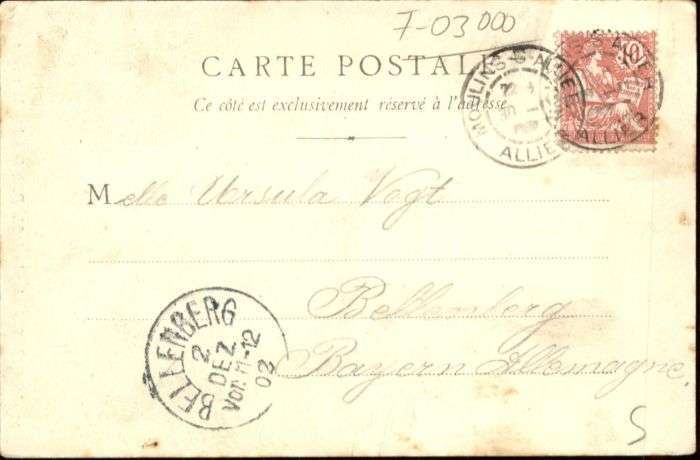 7-03 000
10
CARTE POSTALE
MOULINS-S-ALLIER
ALLIER
ALLIER
Ce côté est exclusivement réservé à l'adresse
Melle Ursula Vogt
Bellenberg
Bayern Allemagne.
BELLENBERG
2
DEZ
Vor. 11-12
02
S